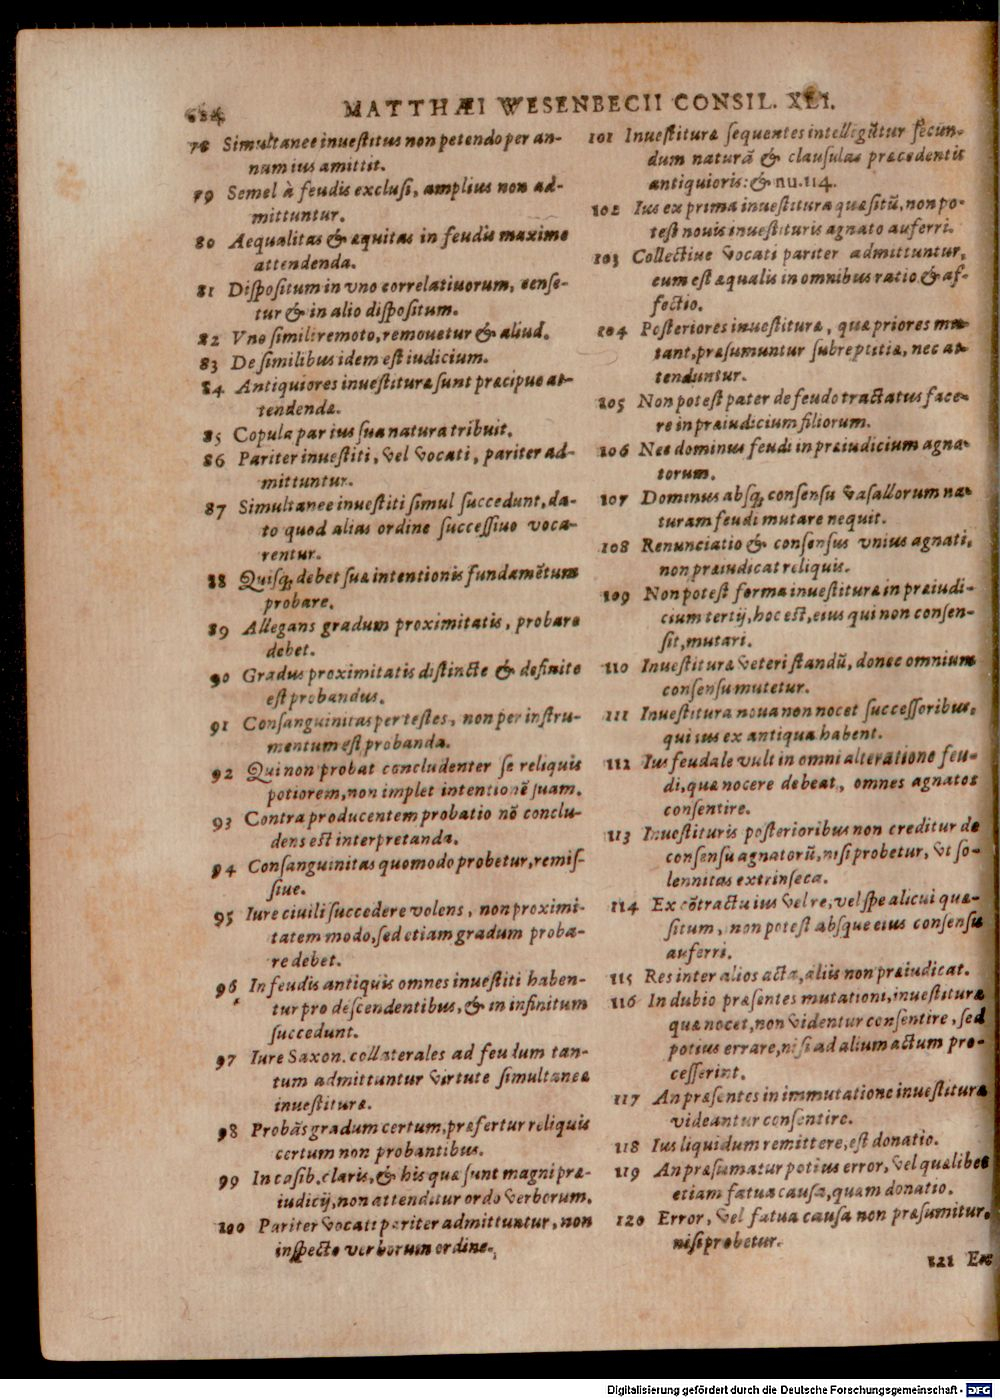 684
MATTHÆI WESENBECII CONSIL. XLI.
78 Simultanee inuestitus non petendo per an-
num ius amittit.
79 Semel à feudis exclusi, amplius non ad-
mittuntur.
80 Aequalitas & æquitas in feudis maxime
attendenda.
81 Dispositum in vno correlatiuorum, cense-
tur & in alio dispositum.
82 Vno simili remoto, remouetur & aliud.
83 De similibus idem est iudicium.
84 Antiquiores inuestituræ sunt præcipue at-
tendendæ.
85 Copula par ius sua natura tribuit.
86 Pariter inuestiti, vel vocati, pariter ad-
mittuntur.
87 Simultanee inuestiti simul succedunt, da-
to quod alias ordine successiuo voca-
rentur.
88 Quisq; debet suæ intentionis fundamẽtum
probare.
89 Allegans gradum proximitatis, probare
debet.
90 Gradus proximitatis distincte & definite
est probandus.
91 Consanguinitas per testes, non per instru-
mentum est probanda.
92 Qui non probat concludenter se reliquis
potiorem, non implet intentionẽ suam.
93 Contra producentem probatio nõ conclu-
dens est interpretanda.
94 Consanguinitas quomodo probetur, remis-
siue.
95 Iure ciuili succedere volens, non proximi-
tatem modo, sed etiam gradum proba-
re debet.
96 In feudis antiquis omnes inuestiti haben-
tur pro descendentibus, & in infinitum
succedunt.
97 Iure Saxon. collaterales ad feudum tan-
tum admittuntur virtute simultaneæ
inuestituræ.
98 Probãs gradum certum, præfertur reliquis
certum non probantibus.
99 In casib. claris, & his quæ sunt magni præ-
iudicij, non attenditur ordo verborum.
100 Pariter vocati pariter admittuntur, non
inspecto verborum ordine.
101 Inuestituræ sequentes intelligũtur secun-
dum naturã & clausulas præcedentis
antiquioris: & nu. 114.
102 Ius ex prima inuestitura quæsitũ, non po-
test nouis inuestituris agnato auferri.
103 Collectiue vocati pariter admittuntur,
cum est æqualis in omnibus ratio & af-
fectio.
104 Posteriores inuestituræ, quæ priores mu-
tant, præsumuntur subreptitiæ, nec at-
tenduntur.
105 Non potest pater de feudo tractatus face-
re in præiudicium filiorum.
106 Nec dominus feudi in præiudicium agna-
torum.
107 Dominus absq; consensu vasallorum na-
turam feudi mutare nequit.
108 Renunciatio & consensus vnius agnati,
non præiudicat reliquis.
109 Non potest forma inuestituræ in præiudi-
cium tertij, hoc est, eius qui non consen-
sit, mutari.
110 Inuestituræ veteri standũ, donec omnium
consensu mutetur.
111 Inuestitura noua non nocet successoribus,
qui ius ex antiqua habent.
112 Ius feudale vult in omni alteratione feu-
di, quæ nocere debeat, omnes agnatos
consentire.
113 Inuestituris posterioribus non creditur de
consensu agnatorũ, nisi probetur, vt so-
lennitas extrinseca.
114 Ex cõtractu ius vel re, vel spe alicui quæ-
situm, non potest absque eius consensu
auferri.
115 Res inter alios acta, aliis non præiudicat.
116 In dubio præsentes mutationi, inuestituræ
quæ nocet, non videntur consentire, sed
potius errare, nisi ad alium actum pro-
cesserint.
117 An præsentes in immutatione inuestituræ
videantur consentire.
118 Ius liquidum remittere, est donatio.
119 An præsumatur potius error, vel quælibet
etiam fatua causa, quam donatio.
120 Error, vel fatua causa non præsumitur,
nisi probetur.
121 Ex
Digitalisierung gefördert durch die Deutsche Forschungsgemeinschaft - DFG